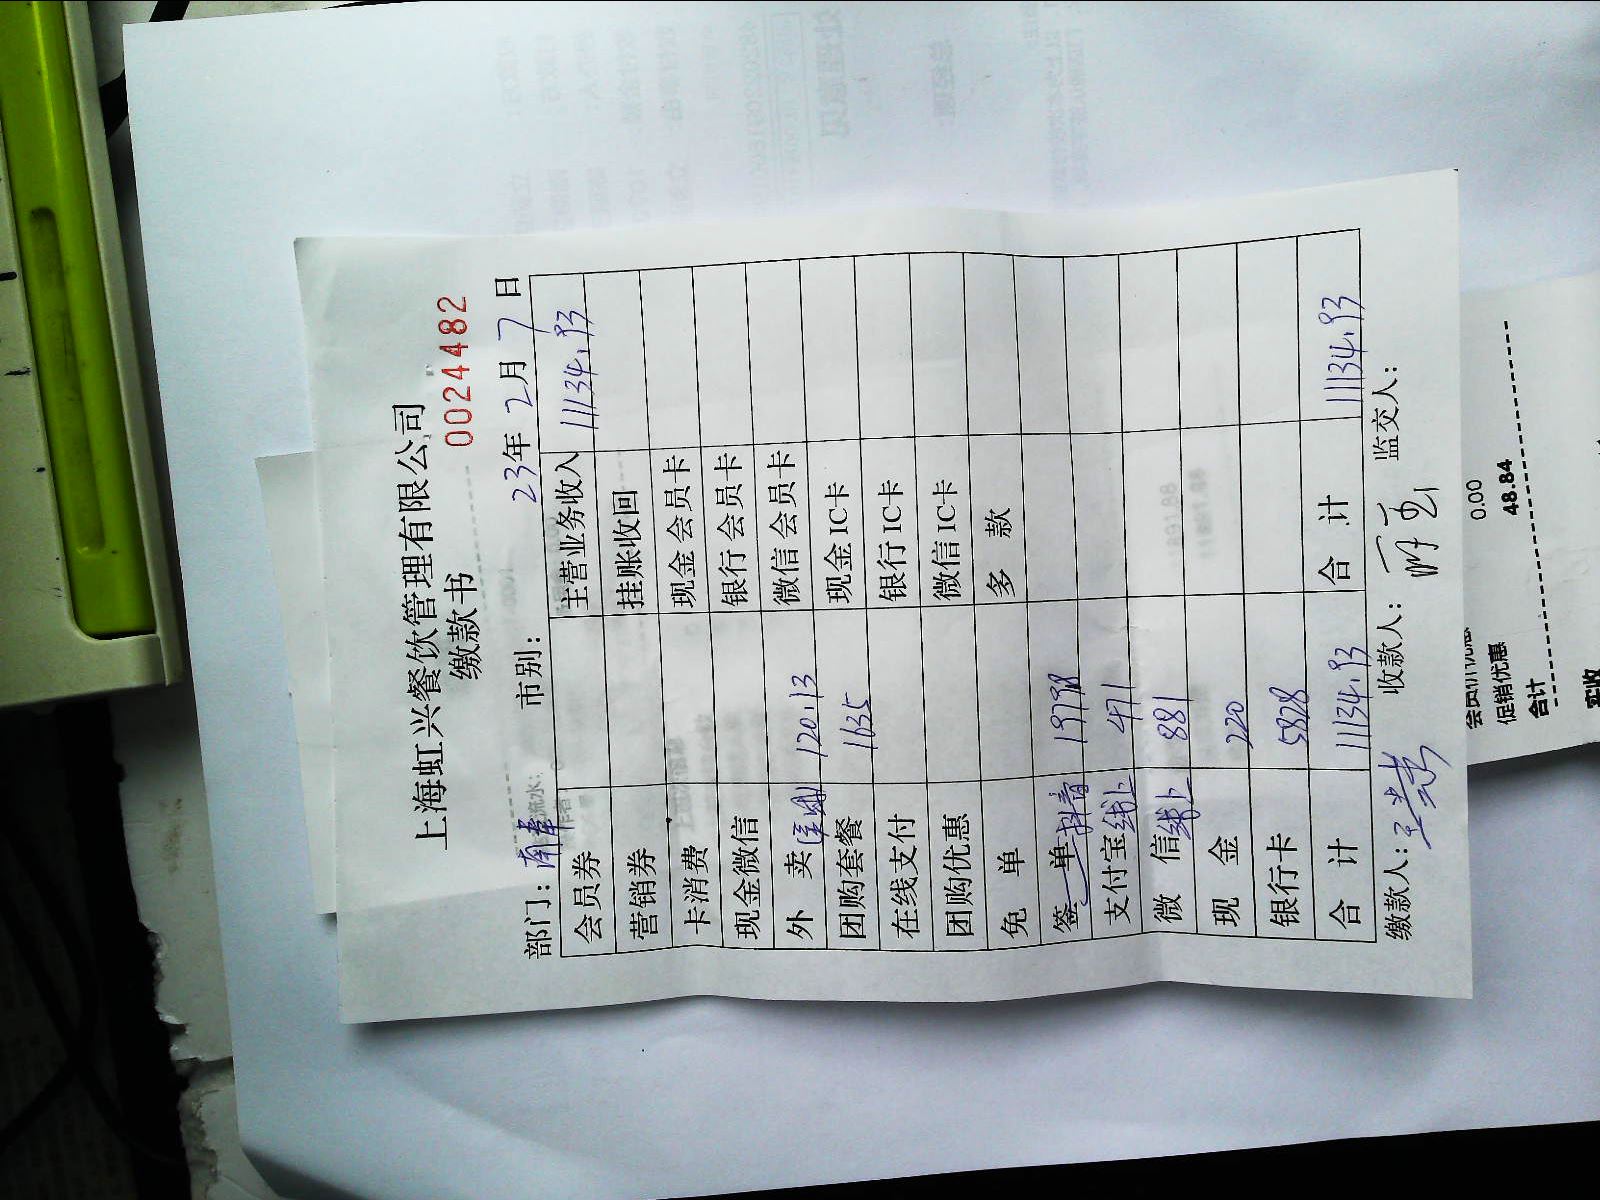 上海虹兴餐饮管理有限公司
缴款书 0024482
部门： 市别： 23年 2月 7日
会员券 主营业务收入 11134.93
营销券 挂账收回
卡消费 现金会员卡
现金微信 银行会员卡
外 卖 120.13 微信会员卡
团购套餐 1635 现金IC卡
在线支付 银行IC卡
团购优惠 微信IC卡
免 单 多 款
签 单 抖音
支付宝 线上 471
微 信 线上 881
现 金 220
银行卡 5828
合 计 11134.93 合 计 11134.93
缴款人： 收款人： 监交人：
0.00
促销优惠 48.84
合计
实收